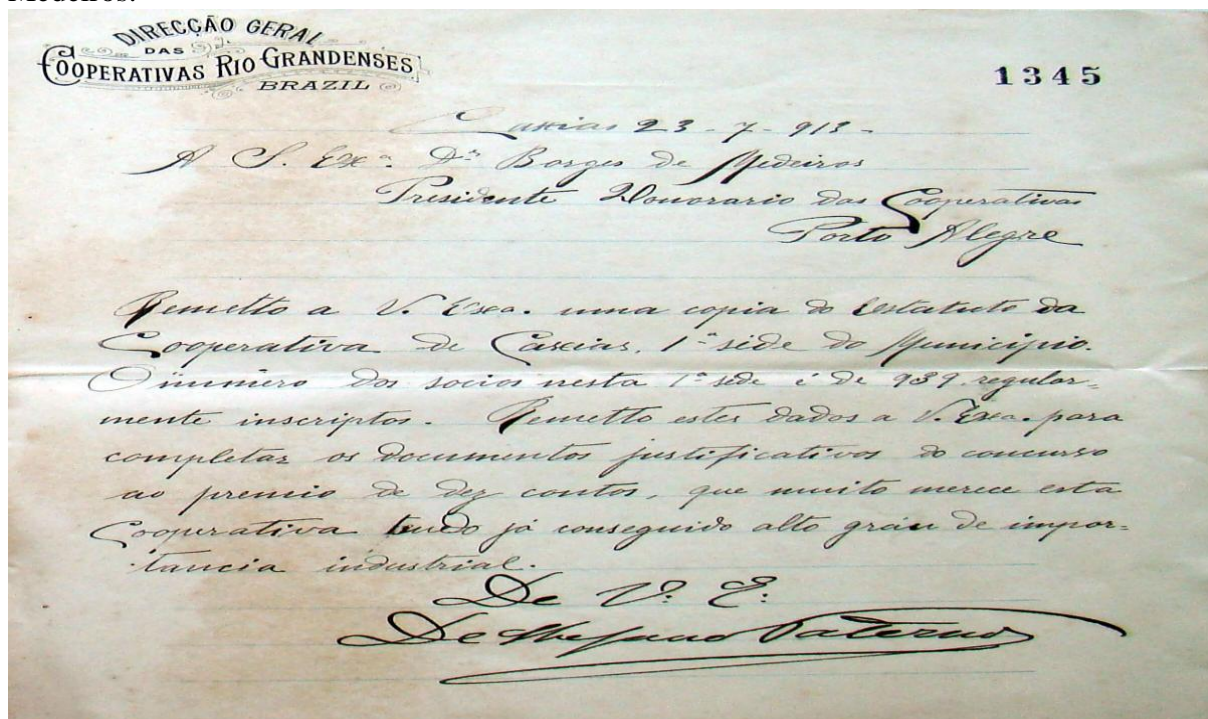 Medeiros.
DIRECÇÃO GERAL
DAS
COOPERATIVAS RIO GRANDENSES
BRAZIL
1345
Caxias 23-7-913-
A S. Exª. Dr. Borges de Medeiros
Presidente Honorario das Cooperativas
Porto Alegre
Remetto a V. Exca. uma copia do Estatuto da
Cooperativa de Caxias, 1ª séde do Municipio.
O número dos socios nesta 1ª séde é de 939 regular=
mente inscriptos. Remetto estes dados a V. Exca. para
completar os documentos justificativos do concurso
ao premio de dez contos, que muito merece esta
Cooperativa tendo já conseguido alto gráu de impor=
tancia industrial.
De V. E.
De Stefano Paternó